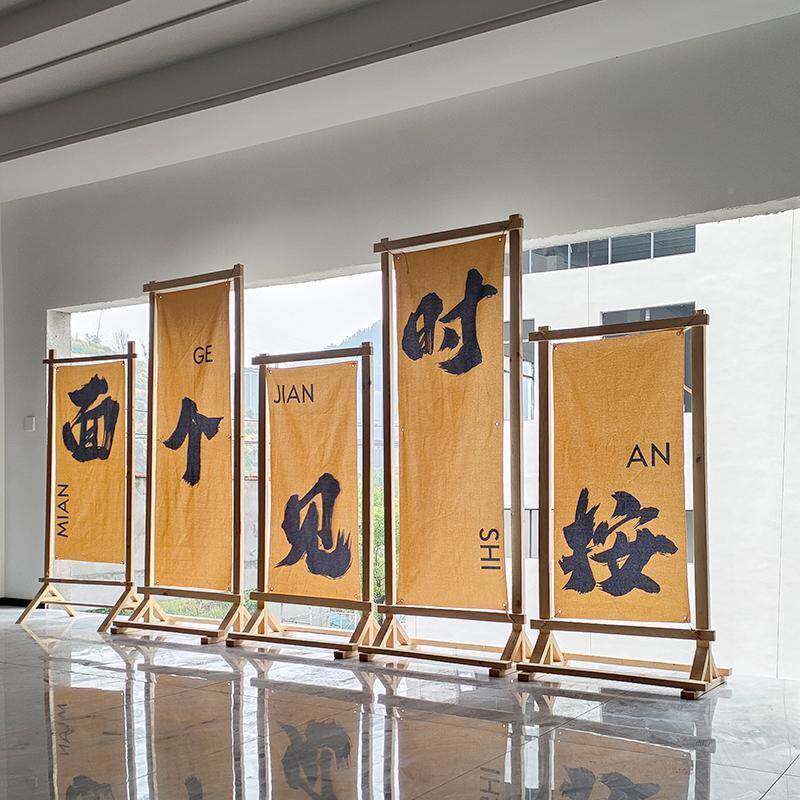 面
MIAN
GE
个
JIAN
见
时
SHI
AN
按